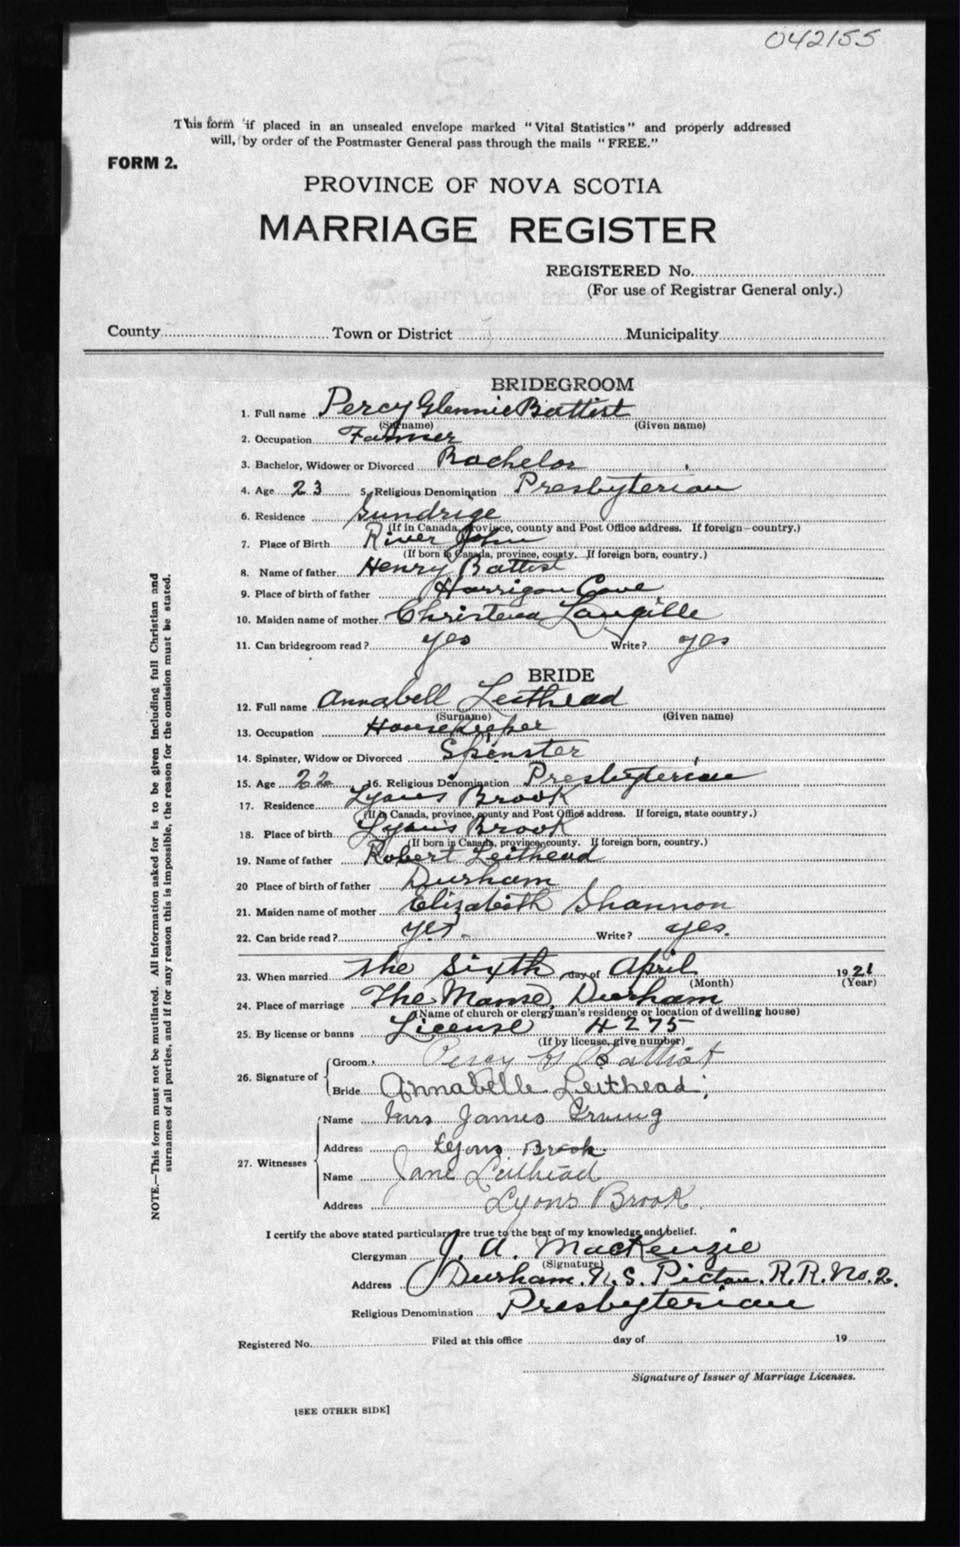 042155
This form if placed in an unsealed envelope marked "Vital Statistics" and properly addressed
will, by order of the Postmaster General pass through the mails "FREE."
FORM 2.
PROVINCE OF NOVA SCOTIA
MARRIAGE REGISTER
REGISTERED No.
(For use of Registrar General only.)
County Town or District Municipality
BRIDEGROOM
1. Full name Percy Glennie Battist
(Surname) (Given name)
2. Occupation Farmer
3. Bachelor, Widower or Divorced Bachelor
4. Age 23 5. Religious Denomination Presbyterian
6. Residence Sundrige
(If in Canada, province, county and Post Office address. If foreign—country.)
7. Place of Birth River John
(If born in Canada, province, county. If foreign born, country.)
8. Name of father Henry Battist
9. Place of birth of father Harrigan Cove
10. Maiden name of mother Christena Langille
11. Can bridegroom read? yes Write? yes
BRIDE
12. Full name Annabell Leithead
(Surname) (Given name)
13. Occupation Housekeeper
14. Spinster, Widow or Divorced Spinster
15. Age 22 16. Religious Denomination Presbyterian
17. Residence Lyons Brook
(If in Canada, province, county and Post Office address. If foreign, state country.)
18. Place of birth Lyons Brook
(If born in Canada, province, county. If foreign born, country.)
19. Name of father Robert Leithead
20 Place of birth of father Durham
21. Maiden name of mother Elizabeth Shannon
22. Can bride read? yes. Write? yes.
23. When married the Sixth day of April 1921
(Month) (Year)
24. Place of marriage The Manse, Durham
(Name of church or clergyman's residence or location of dwelling house)
25. By license or banns License 4275
(If by license, give number)
26. Signature of Groom Percy G Battist
Bride Annabelle Leithead
27. Witnesses Name Mrs James Irving
Address Lyons Brook
Name Jane Leithead
Address Lyons Brook
I certify the above stated particulars are true to the best of my knowledge and belief.
Clergyman J. A. MacKenzie
(Signature)
Address Durham. N. S. Pictou. R. R. No. 2.
Religious Denomination Presbyterian
Registered No. Filed at this office day of 19
Signature of Issuer of Marriage Licenses.
[SEE OTHER SIDE]
NOTE.—This form must not be mutilated. All information asked for is to be given including full Christian and
surnames of all parties, and if for any reason this is impossible, the reason for the omission must be stated.